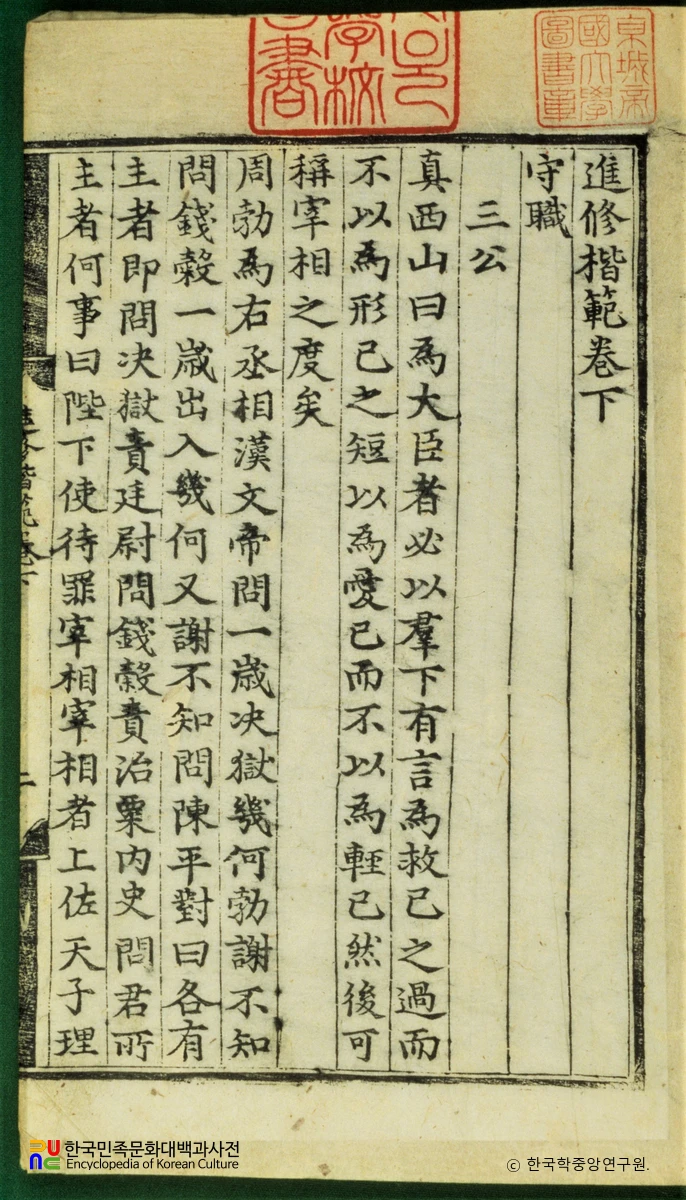 進修楷範卷下
守職
三公
真西山曰為大臣者必以羣下有言為救己之過而
不以為形己之短以為愛己而不以為輕己然後可
稱宰相之度矣
周勃為右丞相漢文帝問一歲決獄幾何勃謝不知
問錢穀一歲出入幾何又謝不知問陳平對曰各有
主者即問决獄責廷尉問錢穀責治粟內史問君所
主者何事曰陛下使待罪宰相宰相者上佐天子理
京城帝
國大學
圖書章
한국민족문화대백과사전
Encyclopedia of Korean Culture
ⓒ 한국학중앙연구원.